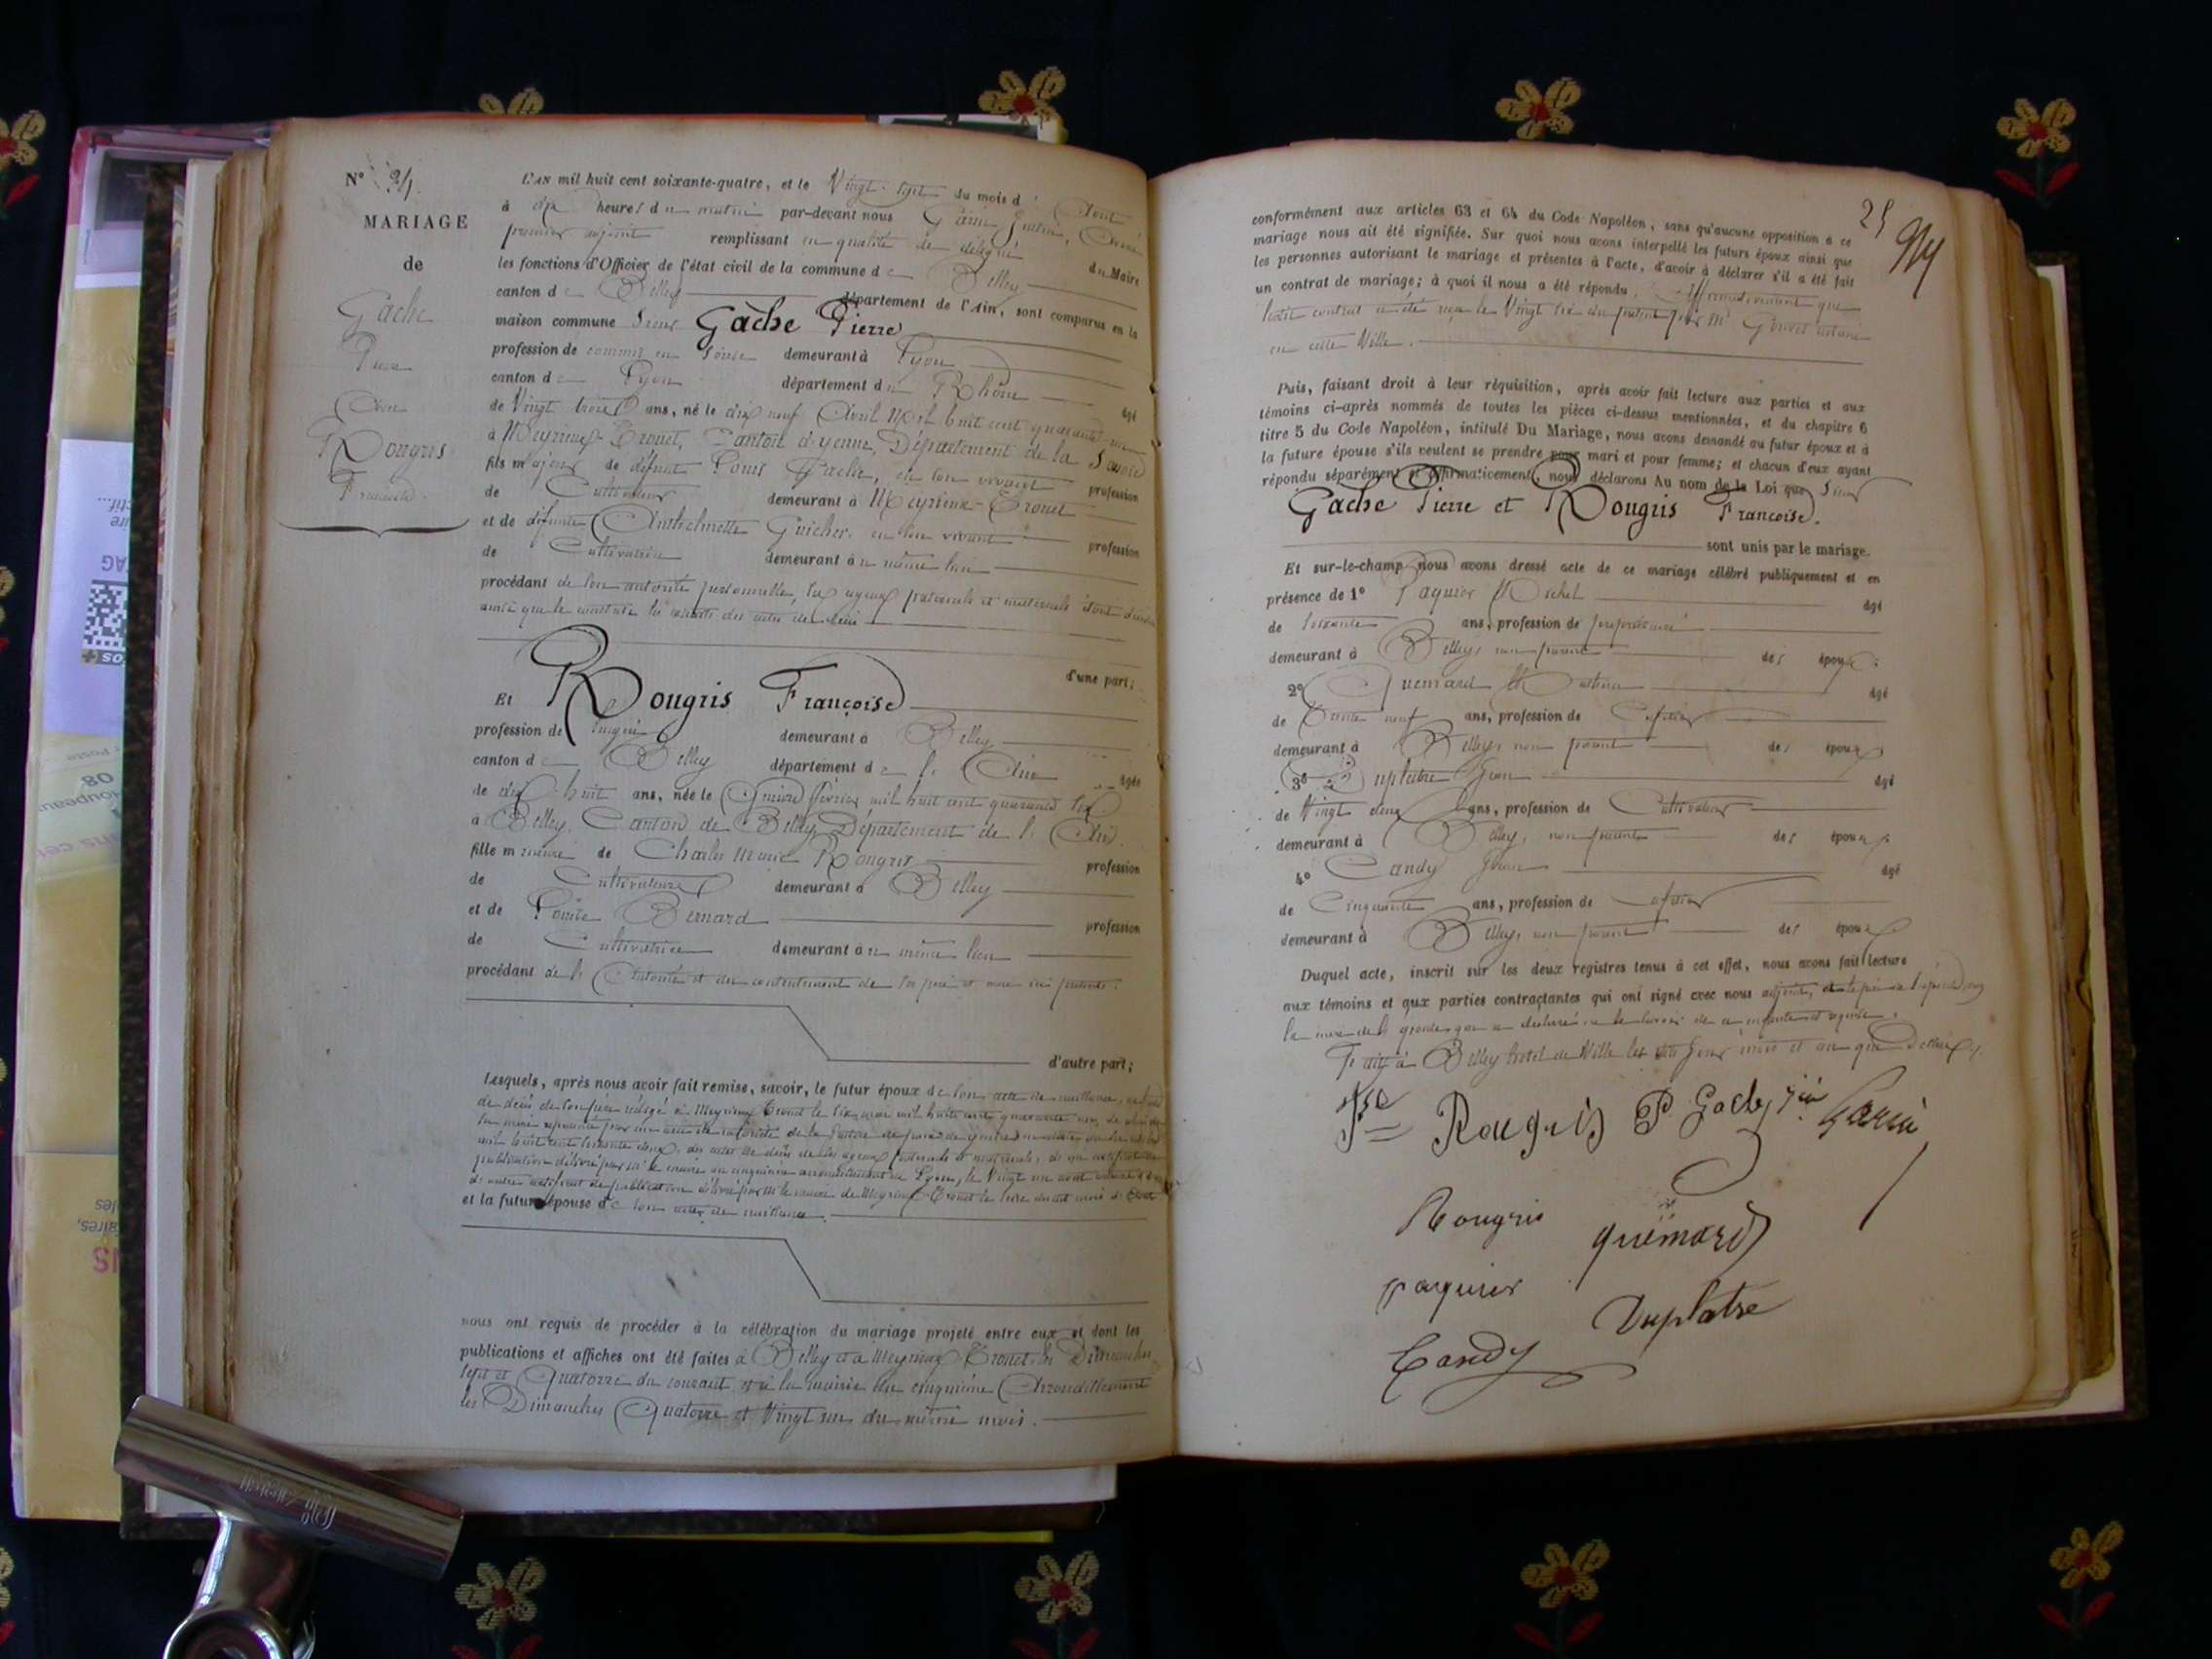 N° 24
MARIAGE
de
Gache
Pierre
Avec
Rougris
Françoise
L'AN mil huit cent soixante-quatre, et le Vingt-sept du mois d'Aout
à dix heures du matin par-devant nous
premier adjoint remplissant en qualité de délégué du Maire
les fonctions d'Officier de l'état civil de la commune de Belley
canton de Belley département de l'Ain, sont comparus en la
maison commune Sieur Gache Pierre
profession de commis en demeurant à Lyon
canton de Lyon département du Rhône âgé
de Vingt trois ans, né le dix neuf Avril Mil huit cent quarante un
à Meyrieux-Trouet, Canton d'yenne, Département de la Savoie
fils majeur de défunt Louis Gache, en son vivant profession
de Cultivateur demeurant à Meyrieux-Trouet
et de défunte Anthelmette Guicher, en son vivant profession
de Cultivatrice demeurant au même lieu
procédant de son autorité personnelle, ses ayeux paternels et maternels étant décédés
ainsi que le constate les extraits des actes de décès
d'une part;
Et Rougris Françoise
profession de Lingère demeurant à Belley
canton de Belley département de l'Ain âgée
de dix-huit ans, née le Quinze février mil huit cent quarante six
à Belley, Canton de Belley, Département de l'Ain.
fille mineure de Charles Marie Rougris profession
de Cultivateur demeurant à Belley
et de Louise Bernard profession
de Cultivatrice demeurant au même lieu
procédant de l'Autorité et du contentement de ses père et mère ici présents.
d'autre part;
Lesquels, après nous avoir fait remise, savoir, le futur époux de son acte de naissance,
de décès de son père rédigé à Meyrieux Trouet le six mai mil huit cent quarante
sa mère
mil huit cent soixante deux, des actes de décès de ses ayeux paternels et maternels, d'un certificat de
publication délivré par Mr le maire du cinquième arrondissement de Lyon, le Vingt un aout
d'autre certificat de publication délivré par Mr le maire de Meyrieux-Trouet le
et la future épouse de son acte de naissance.
nous ont requis de procéder à la célébration du mariage projeté entre eux et dont les
publications et affiches ont été faites à Belley et à Meyrieux Trouet les Dimanches
sept et Quatorze du courant et à la mairie du cinquième Arrondissement
les Dimanches Quatorze et Vingt un du même mois.
25
conformément aux articles 63 et 64 du Code Napoléon, sans qu'aucune opposition à ce
mariage nous ait été signifiée. Sur quoi nous avons interpellé les futurs époux ainsi que
les personnes autorisant le mariage et présentes à l'acte, d'avoir à déclarer s'il a été fait
un contrat de mariage; à quoi il nous a été répondu Affirmativement que
ledit contrat a été reçu le Vingt six du présent par Me notaire
en cette Ville.
Puis, faisant droit à leur réquisition, après avoir fait lecture aux parties et aux
témoins ci-après nommés de toutes les pièces ci-dessus mentionnées, et du chapitre 6
titre 5 du Code Napoléon, intitulé Du Mariage, nous avons demandé au futur époux et à
la future épouse s'ils veulent se prendre pour mari et pour femme; et chacun d'eux ayant
répondu séparément et affirmativement, nous déclarons Au nom de la Loi que Sieur
Gache Pierre et Rougris Françoise.
sont unis par le mariage.
Et sur-le-champ nous avons dressé acte de ce mariage célébré publiquement et en
présence de 1° Paquier Michel âgé
de soixante ans, profession de propriétaire
demeurant à Belley, non parent des époux;
2° Quemard Mathieu âgé
de Trente neuf ans, profession de Cafetier
demeurant à Belley, non parent des époux;
3° Duplatre Jean âgé
de Vingt deux ans, profession de Cultivateur
demeurant à Belley, non parent des époux;
4° Candy Jean âgé
de Cinquante ans, profession de Cafetier
demeurant à Belley, non parent des époux
Duquel acte, inscrit sur les deux registres tenus à cet effet, nous avons fait lecture
aux témoins et aux parties contractantes qui ont signé avec nous adjoint,
la mère de l'épouse qui a déclaré ne le savoir de ce enquise et requise.
Fait à Belley hotel de Ville les dits Jour mois et an que Dessus.
Fse Rougris P. Gache
Rougris quémard
paquier Duplatre
Candy